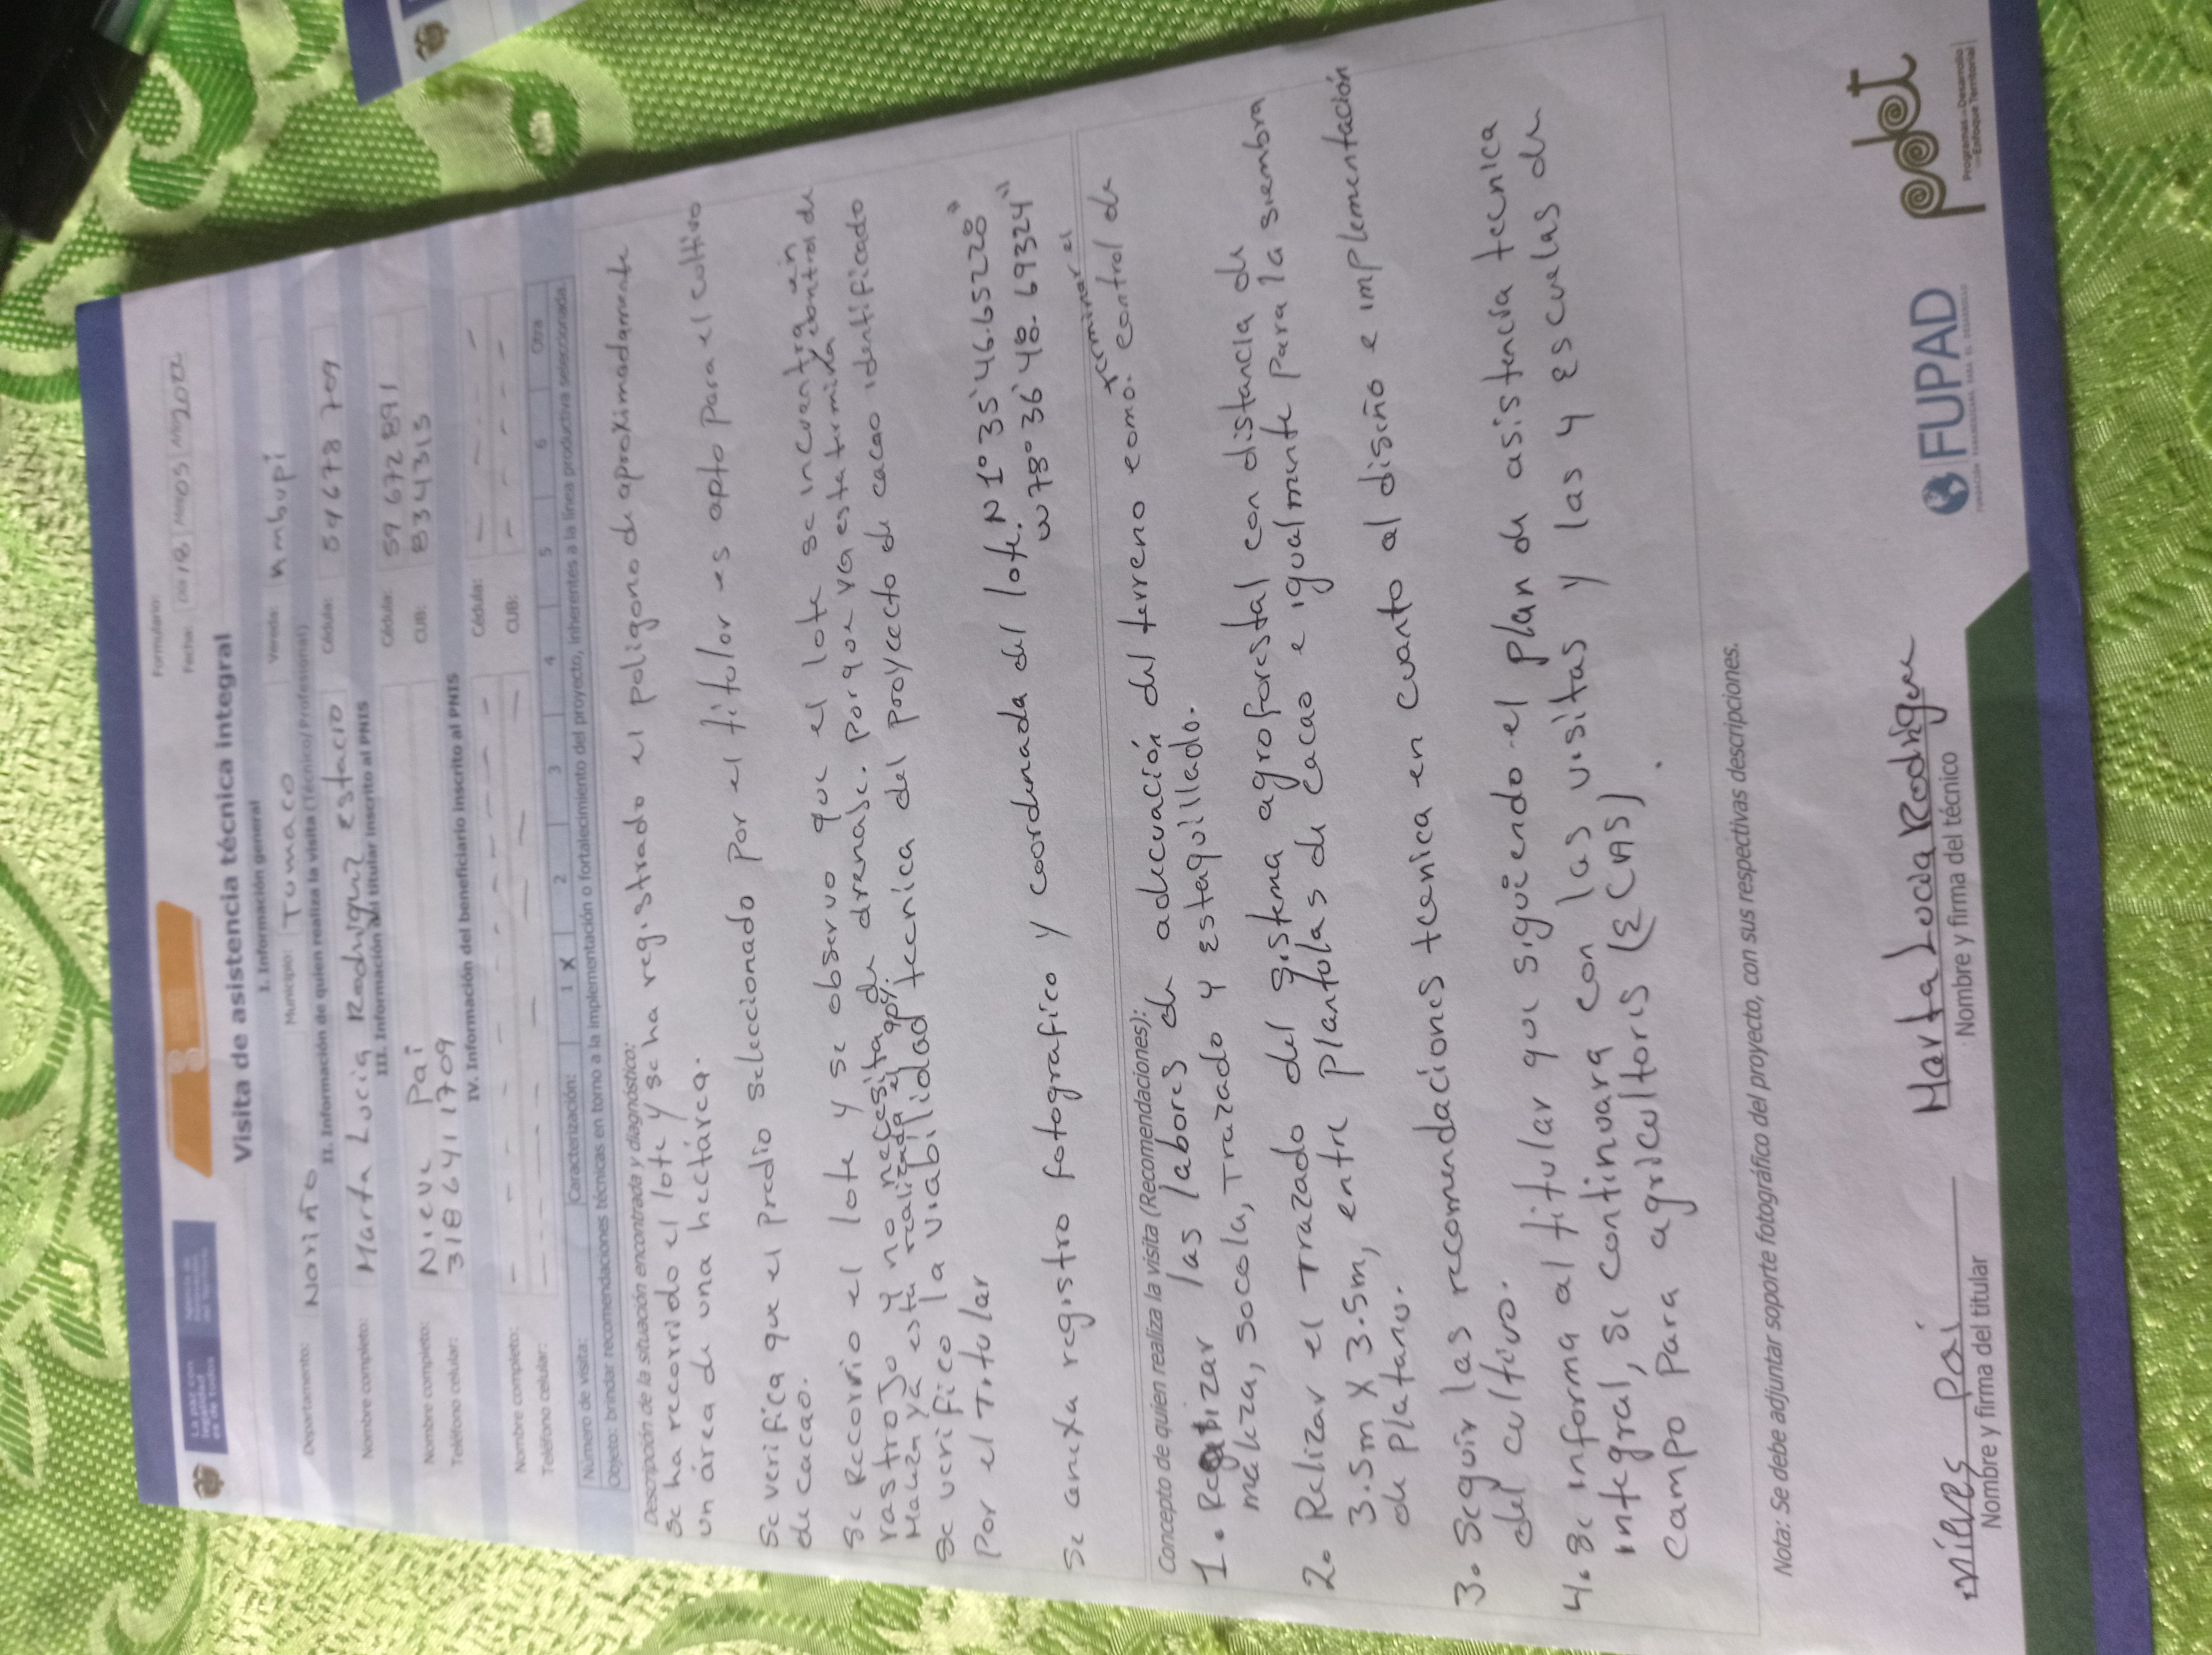 La paz con
legalidad
es de todos
Formulario:
Fecha: DD 18 MM 05 AA 2022
Visita de asistencia técnica integral
I. Información general
Departamento: Nariño Municipio: Tumaco Vereda: Ambupi
II. Información de quien realiza la visita (Técnico/Profesional)
Nombre completo: Marta Lucia Rodriguez Estacio Cédula: 59 678 709
III. Información del titular inscrito al PNIS
Nombre completo: Nieve Pai Cédula: 59 672 891
Teléfono celular: 318 641 1709 CUB: 834315
IV. Información del beneficiario inscrito al PNIS
Nombre completo: Cédula:
Teléfono celular: CUB:
Número de visita: Caracterización: 1 X 2 3 4 5 6 Otra
Objeto: brindar recomendaciones técnicas en torno a la implementación o fortalecimiento del proyecto, inherentes a la línea productiva seleccionada.
Descripción de la situación encontrada y diagnóstico:
Se ha recorrido el lote y se ha registrado el poligono de aproximadamente
un área de una hectárea.
Se verifica que el predio seleccionado por el titular es apto para el cultivo
de cacao.
Se Recorrio el lote y se observo que el lote se incuentra en
rastrojo y no necesita de drenase. Porque ya esta termina control de
Maleza ya esta realizada el 90%.
Se verifico la viabilidad tecnica del proyecto de cacao identificado
Por el Titular
Se anexa registro fotografico y coordenada del lote. N 1° 35' 46.65220"
W 78° 36' 48.69324"
Concepto de quien realiza la visita (Recomendaciones):
1. Realizar las labores de adecuación del terreno como: terminar el control de
maleza, socola, Trazado y Estaquillado.
2. Relizar el trazado del sistema agroforestal con distancia de
3.5m X 3.5m, entre plantulas de cacao e igualmente para la siembra
de platano.
3. Seguir las recomendaciones tecnica en cuanto al diseño e implementación
del cultivo.
4. se informa al titular que siguiendo el plan de asistencia tecnica
integral, se continuara con las visitas y las 4 escuelas de
campo para agricultores (ECAS).
Nota: Se debe adjuntar soporte fotográfico del proyecto, con sus respectivas descripciones.
nieves Pai
Nombre y firma del titular
Marta Lucia Rodrigue
Nombre y firma del técnico
FUPAD
pdet
Programas de Desarrollo
con Enfoque Territorial